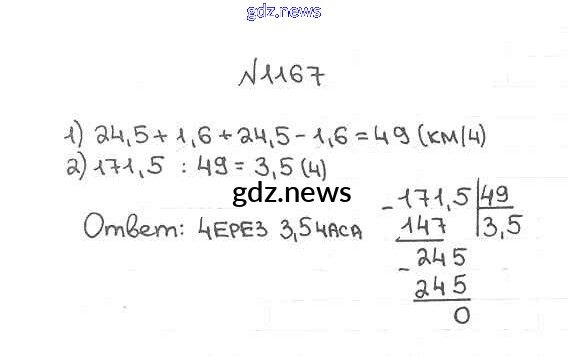 gdz.news
№1167
1) 24,5 + 1,6 + 24,5 - 1,6 = 49 (км/ч)
2) 171,5 : 49 = 3,5 (ч)
gdz.news
Ответ: через 3,5 часа
- 171,5 | 49
147 | 3,5
- 245
245
0